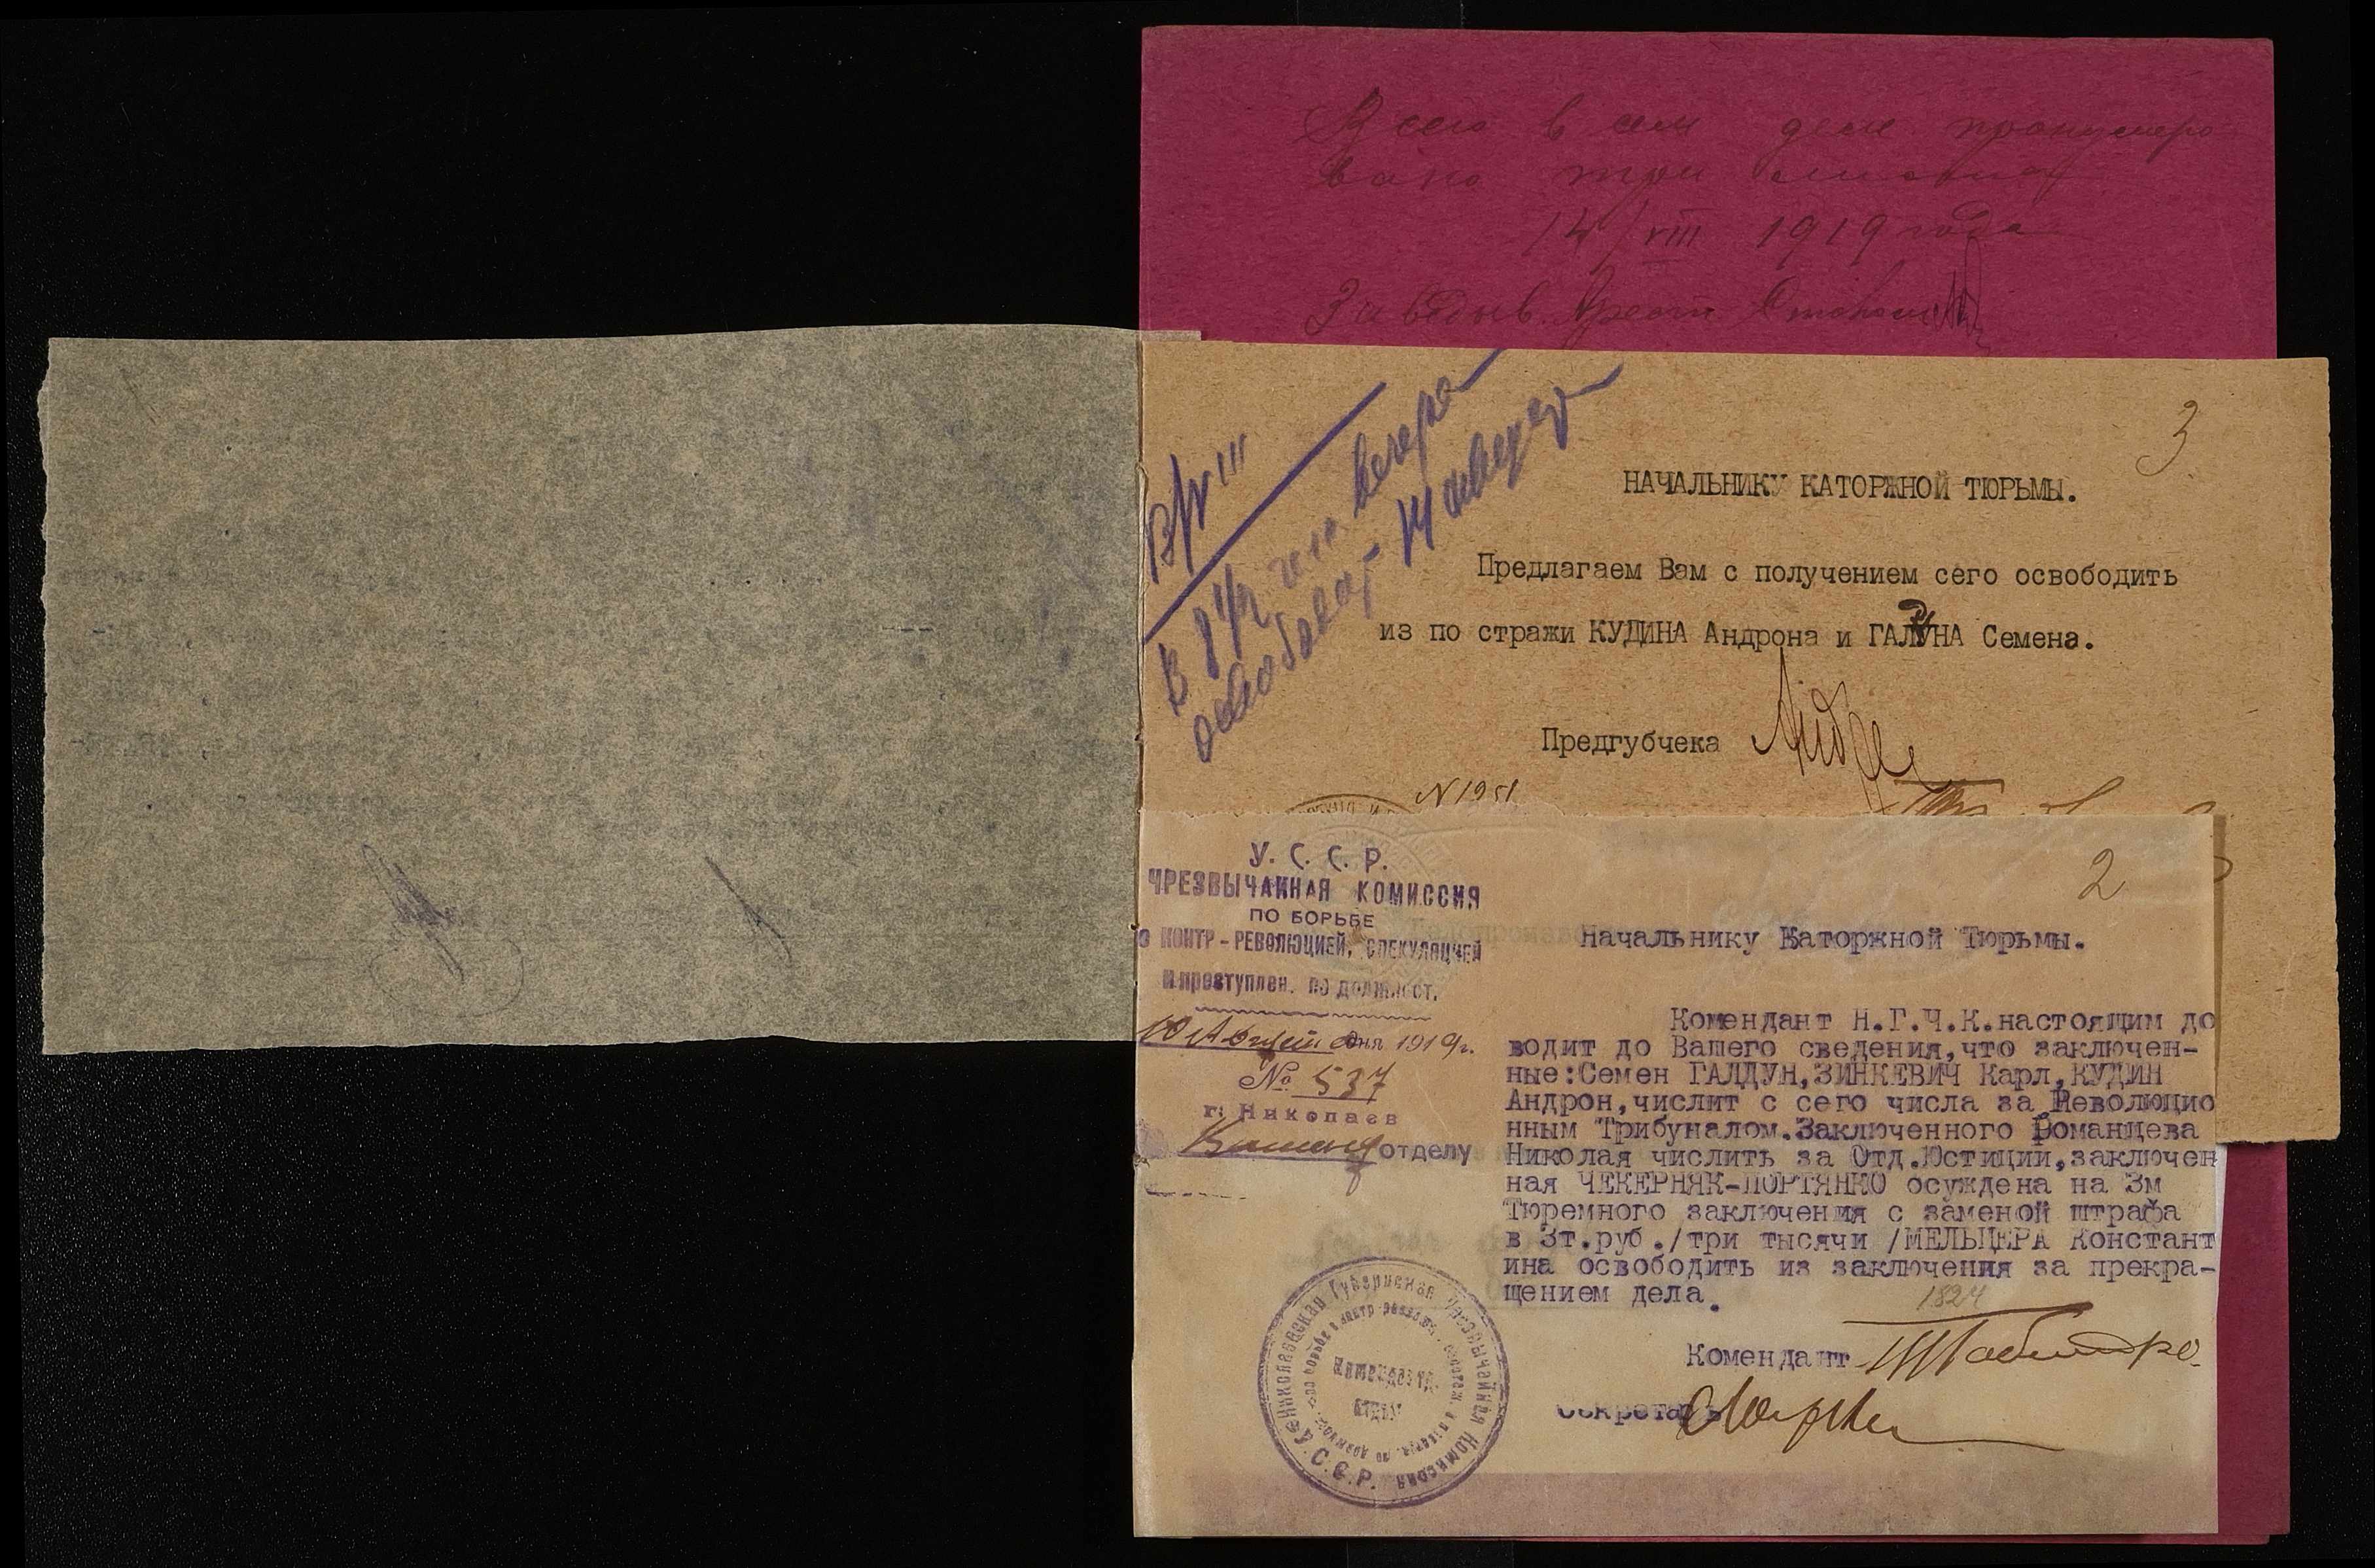 Всего в сем деле пронумеро
вано три листа
14/VIII 1919 года
Заведыв. Арест.
3
В 8 1/2 час. вечера
НАЧАЛЬНИКУ КАТОРЖНОЙ ТЮРЬМЫ.
Предлагаем Вам с получением сего освободить
из по стражи КУДИНА Андрона и ГАЛДУНА Семена.
Предгубчека
N 1951
2
У. С. С. Р.
ЧРЕЗВЫЧАЙНАЯ КОМИССИЯ
ПО БОРЬБЕ
С КОНТР-РЕВОЛЮЦИЕЙ, СПЕКУЛЯЦИЕЙ
и преступлен. по должност.
10 Август дня 1919г.
№ 537
г. Николаев
Команд отделу
Начальнику Каторжной Тюрьмы.
Комендант Н.Г.Ч.К.настоящим до
водит до Вашего сведения,что заключен-
ные:Семен ГАЛДУН,ЗИНКЕВИЧ Карл,КУДИН
Андрон,числит с сего числа за Революцио
нным Трибуналом.Заключенного Романцева
Николая числить за Отд.Юстиции,заключен
ная ЧЕКЕРНЯК-ПОРТЯНКО осуждена на 3м
Тюремного заключения с заменой штрафа
в 3т.руб./три тысячи /МЕЛЬЦЕРА Констант
ина освободить из заключения за прекра-
щением дела.
1824
Комендант
Секретарь
Николаевская Губернская Чрезвычайная Комиссия
У.С.С.Р.
по борьбе с контр-революц.
Комендантск.
отдел